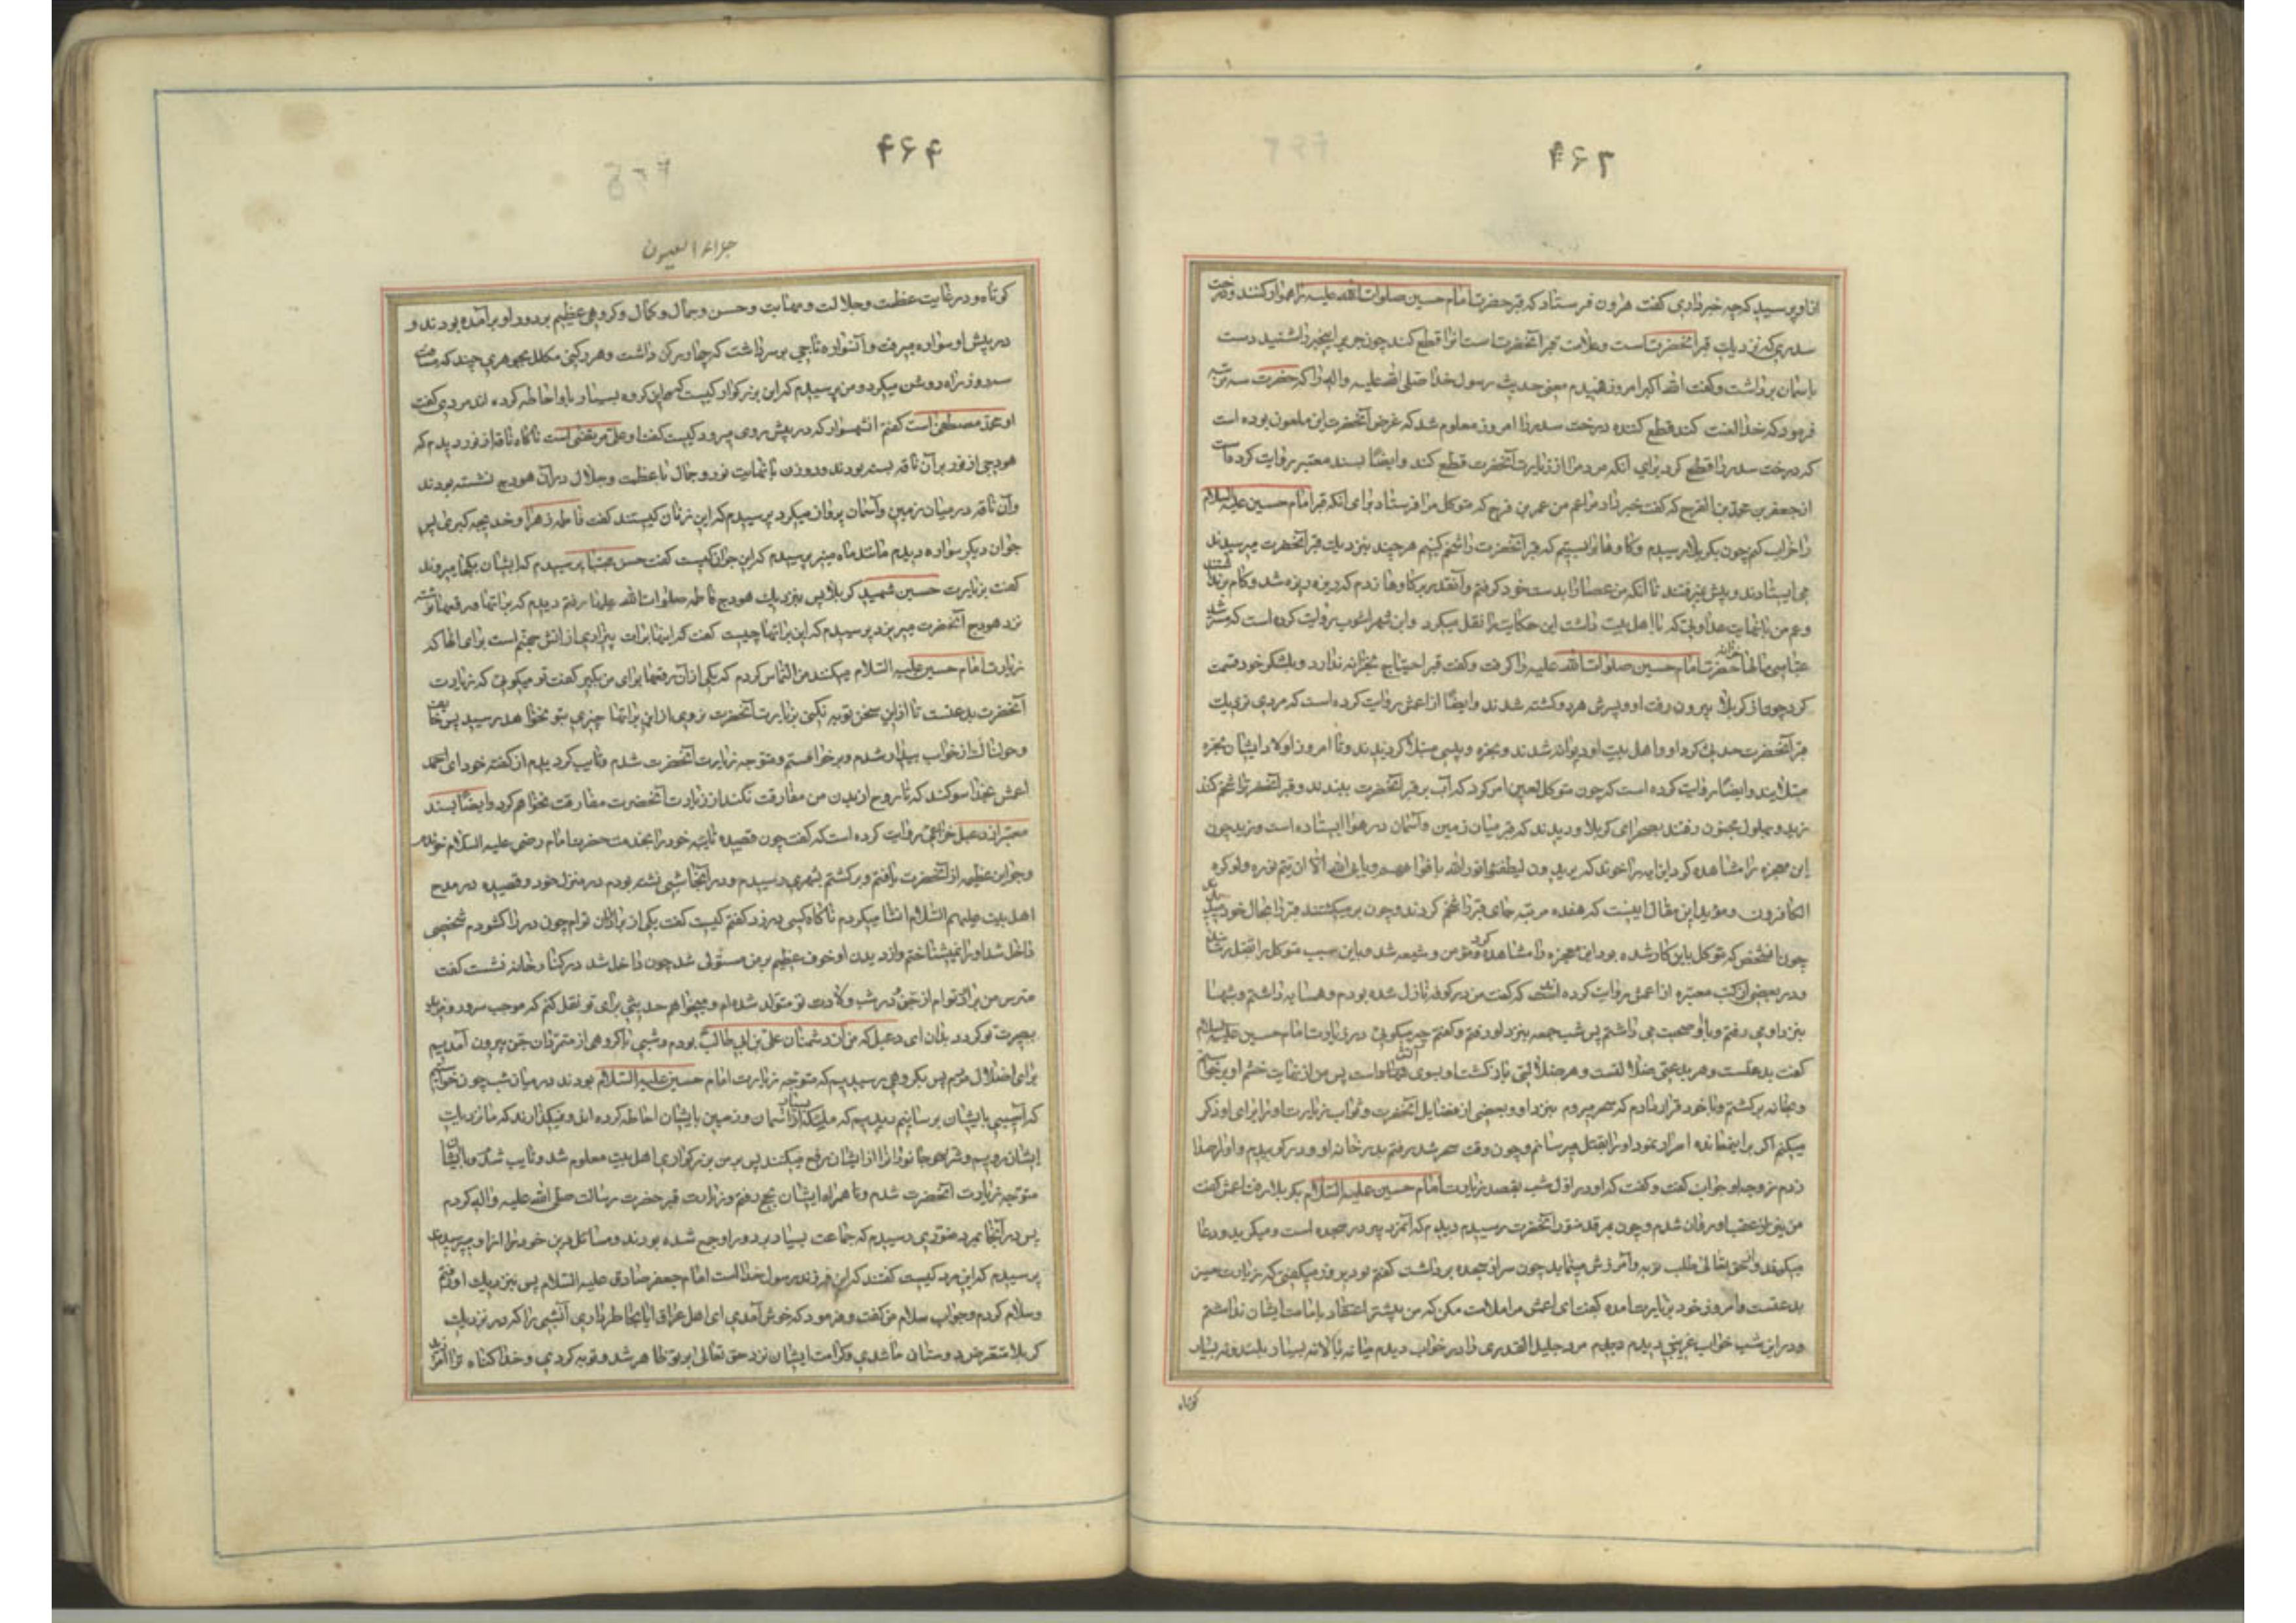 ۴۶۳
از او پرسید که چه خبر داری گفت هرون فرستاد که قبر حضرت امام حسین صلوات الله علیه را هموار کنند و درخت
سدری که نزدیك قبر آنحضرتست و علامت قبر آنحضرتست آنرا قطع کند چون جریر اینخبر را شنید دست
باسمان برداشت و گفت الله اکبر امروز فهمیدم معنی حدیث رسول خدا صلی الله علیه واله را که حضرت سه مرتبه
فرمود که خدا لعنت کند قطع کننده درخت سدر را امروز معلوم شد که غرض آنحضرت این ملعون بوده است
که درخت سدر را قطع کرد برای آنکه مردم را از زیارت آنحضرت قطع کند وایضًا بسند معتبر روایت کرده است
از جعفر بن محمد بن الفرج که گفت خبر داد مرا عم من عمر بن فرج که متوکل مرا فرستاد برای انکه قبر امام حسین علیه السلام
را خراب کنم چون بکربلا رسیدم و گاوها را بستیم که قبر آنحضرت را شخم کنیم هر چند بنزدیك قبر آنحضرت میرسیدند
می ایستادند و پیش نمیرفتند تا آنکه من عصا را بدست خود گرفتم و آنقدر بر گاوها زدم که ریزه ریزه شد و گام برنداشتند
و عم من با نهایت عداوتی که با اهل بیت داشت این حکایت را نقل میکرد و ابن شهراشوب روایت کرده است که مسترشد
عباسی مالهای خزانه حضرت امام حسین صلوات الله علیه را گرفت و گفت قبر احتیاج بخزانه ندارد و بلشکر خود قسمت
کرد چون از کربلا بیرون رفت او و پسرش هر دو کشته شدند وایضًا از اعمش روایت کرده است که مردی نزدیك
قبر آنحضرت حدث کرد او و اهل بیت او دیوانه شدند و بخوره و پیسی مبتلا گردیدند و تا امروز اولاد ایشان بخوره
مبتلایند وایضًا روایت کرده است که چون متوکل لعین امر کرد که آب بر قبر آنحضرت ببندند و قبر آنحضرت را شخم کنند
زید و بهلول مجنون رفتند بصحرای کربلا و دیدند که قبر میان زمین و آسمان در هوا ایستاده است و زید چون
این معجزه را مشاهده کرد این ایه را خواند که یریدون لیطفئوا نور الله بافواههم ویابی الله الا ان یتم نوره ولو کره
الکافرون و مؤید این مقال اینست که هفده مرتبه جای قبر را شخم کردند و چون بر میگشتند قبر را بحال خود میدیدند
چون آنشخص که متوکل باین کار شده بود این معجزه را مشاهده کرد مؤمن و شیعه شد و باین سبب متوکل او را بقتل رسانید
و در بعضی از کتب معتبره از اعمش روایت کرده اند که گفت من در کوفه نازل شده بودم و همسایه داشتم و شبها
بنزد او می رفتم و با او صحبت می داشتم پس شب جمعه بنزد او رفتم و گفتم چه میگوئی در زیارت امام حسین علیه السلام
گفت بدعتست و هر بدعتی ضلالتست و هر ضلالتی بازگشت او بسوی آتش است پس من از نهایت خشم او برخاستم
و بخانه برگشتم و با خود قرار دادم که سحر میروم بنزد او و بعضی از فضایل آنحضرت و ثواب زیارت او را برای او ذکر
میکنم اگر بر اینعقیده اصرار نمود او را بقتل میرسانم و چون وقت سحر شد رفتم بدر خانه او و در کوبیدم و او را صدا
زدم زوجه او جواب گفت و گفت که او در اول شب بقصد زیارت امام حسین علیه السلام بکربلا رفت اعمش گفت
من نیز از عقب او روان شدم و چون بمرقد منور آنحضرت رسیدم دیدم که آنمرد پیر در سجده است و میگرید و دعا
میکند و از حق تعالی طلب توبه و آمرزش مینماید چون سر از سجده برداشت گفتم تو دیروز میگفتی که زیارت حسین
بدعتست و امروز خود بزیارت آمده گفت ای اعمش مرا ملامت مکن که من پیشتر اعتقاد بامامت ایشان نداشتم
و در این شب خواب غریبی دیدم دیدم مرد جلیل القدری را در خواب دیدم میانه بالا نه بسیار بلند و نه بسیار
کوتاه
۴۶۴
جلاء العیون
کوتاه و در غایت عظمت و جلالت و مهابت و حسن و جمال و کمال و گروهی عظیم بر دور او برآمده بودند و
در پیش او سواره میرفت و آنسواره تاجی بر سر داشت که چهار رکن داشت و هر رکنی مکلل بجوهری چند که مسافت
سه روز راه روشن میکرد و من پرسیدم که این بزرگوار کیست که این گروه بسیار باو احاطه کرده اند مردی گفت
او محمد مصطفی است گفتم آنشهسوار که در پیش روی میرود کیست گفت او علی مرتضی است ناگاه ناقه از نور دیدم که
هودجی از نور بر آن ناقه بسته بودند و دو زن با نهایت نور و جمال با عظمت و جلال در آن هودج نشسته بودند
و آن ناقه در میان زمین و آسمان پرواز میکرد پرسیدم که این زنان کیستند گفت فاطمه زهرا و خدیجه کبری پس
جوان دیگر سواره دیدم مانند ماه منیر پرسیدم که این جوان کیست گفت حسن مجتبا پرسیدم که ایشان بکجا میروند
گفت بزیارت حسین شهید کربلا پس بنزدیك هودج فاطمه صلوات الله علیها رفتم دیدم که براتها و رقعها نوشته
نزد هودج آنحضرت میریزد پرسیدم که این براتها چیست گفت که اینها برات بیزاری از آتش جهنم است برای آنها که
زیارت امام حسین علیه السلام میکنند من التماس کردم که یکی از آن رقعها برای من بگیر گفت تو میگویی که زیارت
آنحضرت بدعتست تا از این سخن توبه نکنی بزیارت آنحضرت نروی از این براتها چیزی بتو نخواهد رسید پس خائف
و هراسان از خواب بیدار شدم و برخواستم و متوجه زیارت آنحضرت شدم و تایب گردیدم از گفته خود ای
اعمش بخدا سوگند که تا روح از بدن من مفارقت نکند از زیارت آنحضرت مفارقت نخواهم کرد وایضًا بسند
معتبر از دعبل خزاعی روایت کرده است که گفت چون قصیده تائیه خود را بخدمت حضرت امام رضی علیه السلام خواندم
و جواین عظیمه از آنحضرت یافتم و برگشتم بشهری رسیدم و در آنجا شبی نشسته بودم در منزل خود و قصیده در مدح
اهل بیت علیهم السلام انشا میکردم ناگاه کسی در زد گفتم کیست گفت یکی از برادران توام چون در را گشودم شخصی
داخل شد او را نمیشناختم و از دیدن او خوف عظیم بر من مستولی شد چون داخل شد در کنار خانه نشست گفت
مترس من برادر توام از جن در شب ولادت تو متولد شده ام و میخواهم حدیثی برای تو نقل کنم که موجب سرور و مزید
بصیرت تو گردد بدان ای دعبل که من از دشمنان علی بن ابی طالب بودم و شبی با گروهی از متمردان جن بیرون آمدیم
برای اضلال مردم پس بگروهی رسیدیم که متوجه زیارت امام حسین علیه السلام بودند در میان شب چون خواستیم
که آسیبی بایشان برسانیم دیدیم که ملئکه بسیار از آسمان و زمین بایشان احاطه کرده اند و نمیگذارند که ما نزدیك
ایشان رویم و شر همه جانوران را از ایشان رفع میکنند پس بر من بزرگواری اهل بیت معلوم شد و تایب شدم و با ایشان
متوجه زیارت آنحضرت شدم و با همراه ایشان بحج رفتم و زیارت قبر حضرت رسالت صلی الله علیه واله کردم
پس در آنجا بمرد منوری رسیدم که جماعت بسیار بر دور او جمع شده بودند و مسائل دین خود را از او میپرسیدند
پرسیدم که این مرد کیست گفتند که این فرزند رسول خداست امام جعفر صادق علیه السلام پس بنزدیك او رفتم
و سلام کردم و جواب سلام من گفت و فرمود که خوش آمدی ای اهل عراق ایا بخاطر داری آنشبی را که در نزدیك
کربلا متعرض دوستان ما شدی و کرامت ایشان نزد حق تعالی بر تو ظاهر شد و توبه کردی و خدا گناه ترا آمرزید